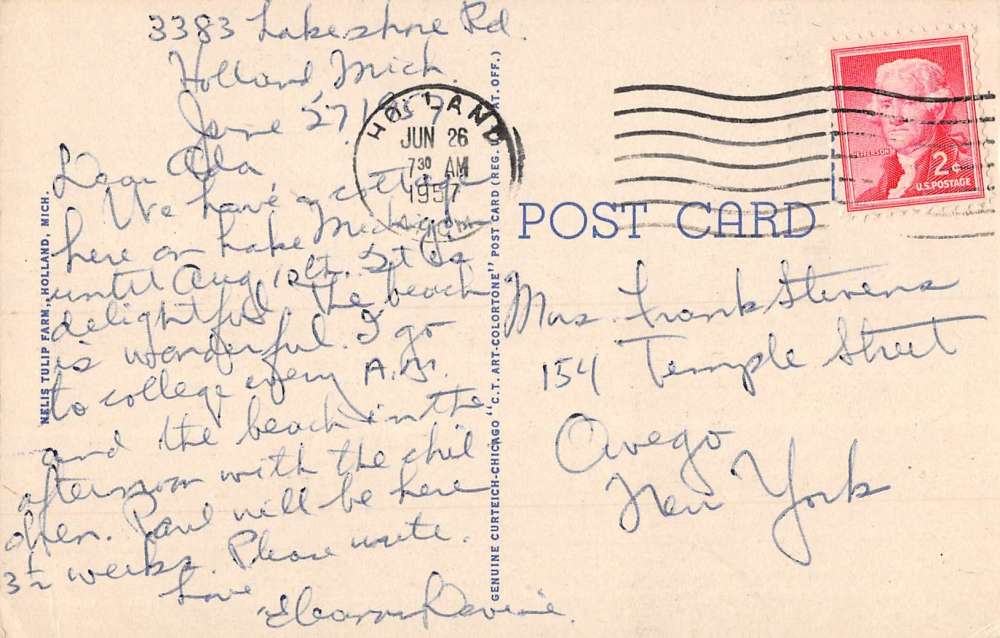 3383 Lakeshore Rd.
Holland, Mich.
June 27, 1957
Dear Ada
We have a cottage
here on Lake Michigan
until Aug, 1st. It is
delightful. The beach
is wonderful. I go
to college every A.M.
and the beach in the
afternoon with the chil
dren. Paul will be here
3½ weeks. Please write.
Love
Eleanor
NELIS TULIP FARM, HOLLAND, MICH.
GENUINE CURTEICH-CHICAGO "C.T. ART-COLORTONE" POST CARD (REG. U.S. PAT. OFF.)
HOLLAND
JUN 26
7 30 AM
1957
MICH.
POST CARD
JEFFERSON
2¢
U.S. POSTAGE
Mrs. Frank Stevens
154 Temple Street
Owego
New York